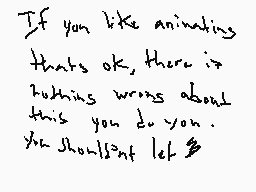 If you like animating
thats ok, there is
nothing wrong about
this you do you.
You shouldnt let